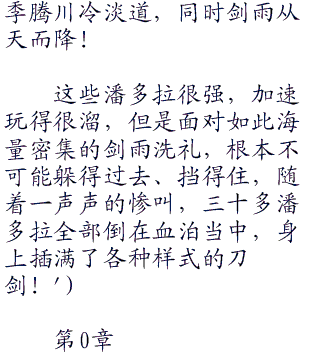 季腾川冷淡道，同时剑雨从
天而降！
这些潘多拉很强，加速
玩得很溜，但是面对如此海
量密集的剑雨洗礼，根本不
可能躲得过去、挡得住，随
着一声声的惨叫，三十多潘
多拉全部倒在血泊当中，身
上插满了各种样式的刀
剑！′)
第0章